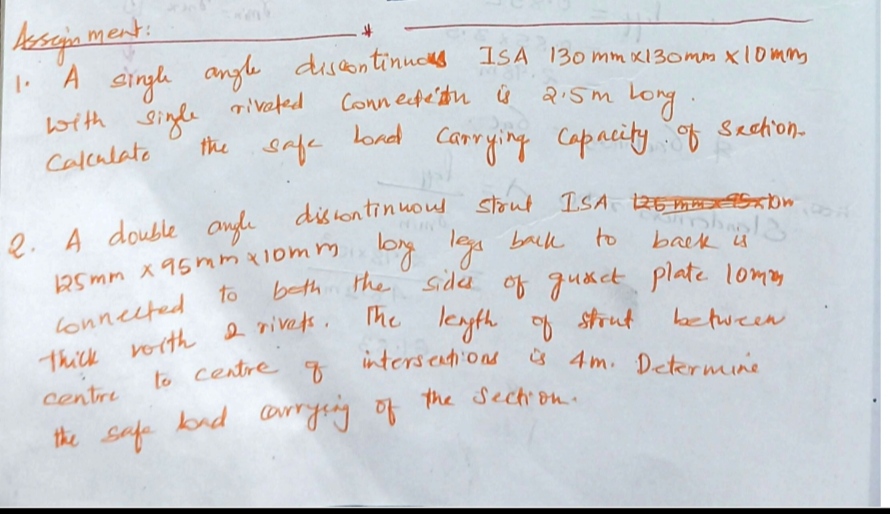 Assignment: *
1. A single angle discontinuous ISA 130 mm x130mm x10mm
with single rivated Connection is 2.5m Long.
Calculate the safe load Carrying Capacity of Section.
2. A double angle discontinuous strut ISA
125mm x 95mm x10mm long legs back to back is
connected to both the sides of gusset plate 10mm
thick with 2 rivets. The length of strut between
centre to centre of intersections is 4m. Determine
the safe load carrying of the section.